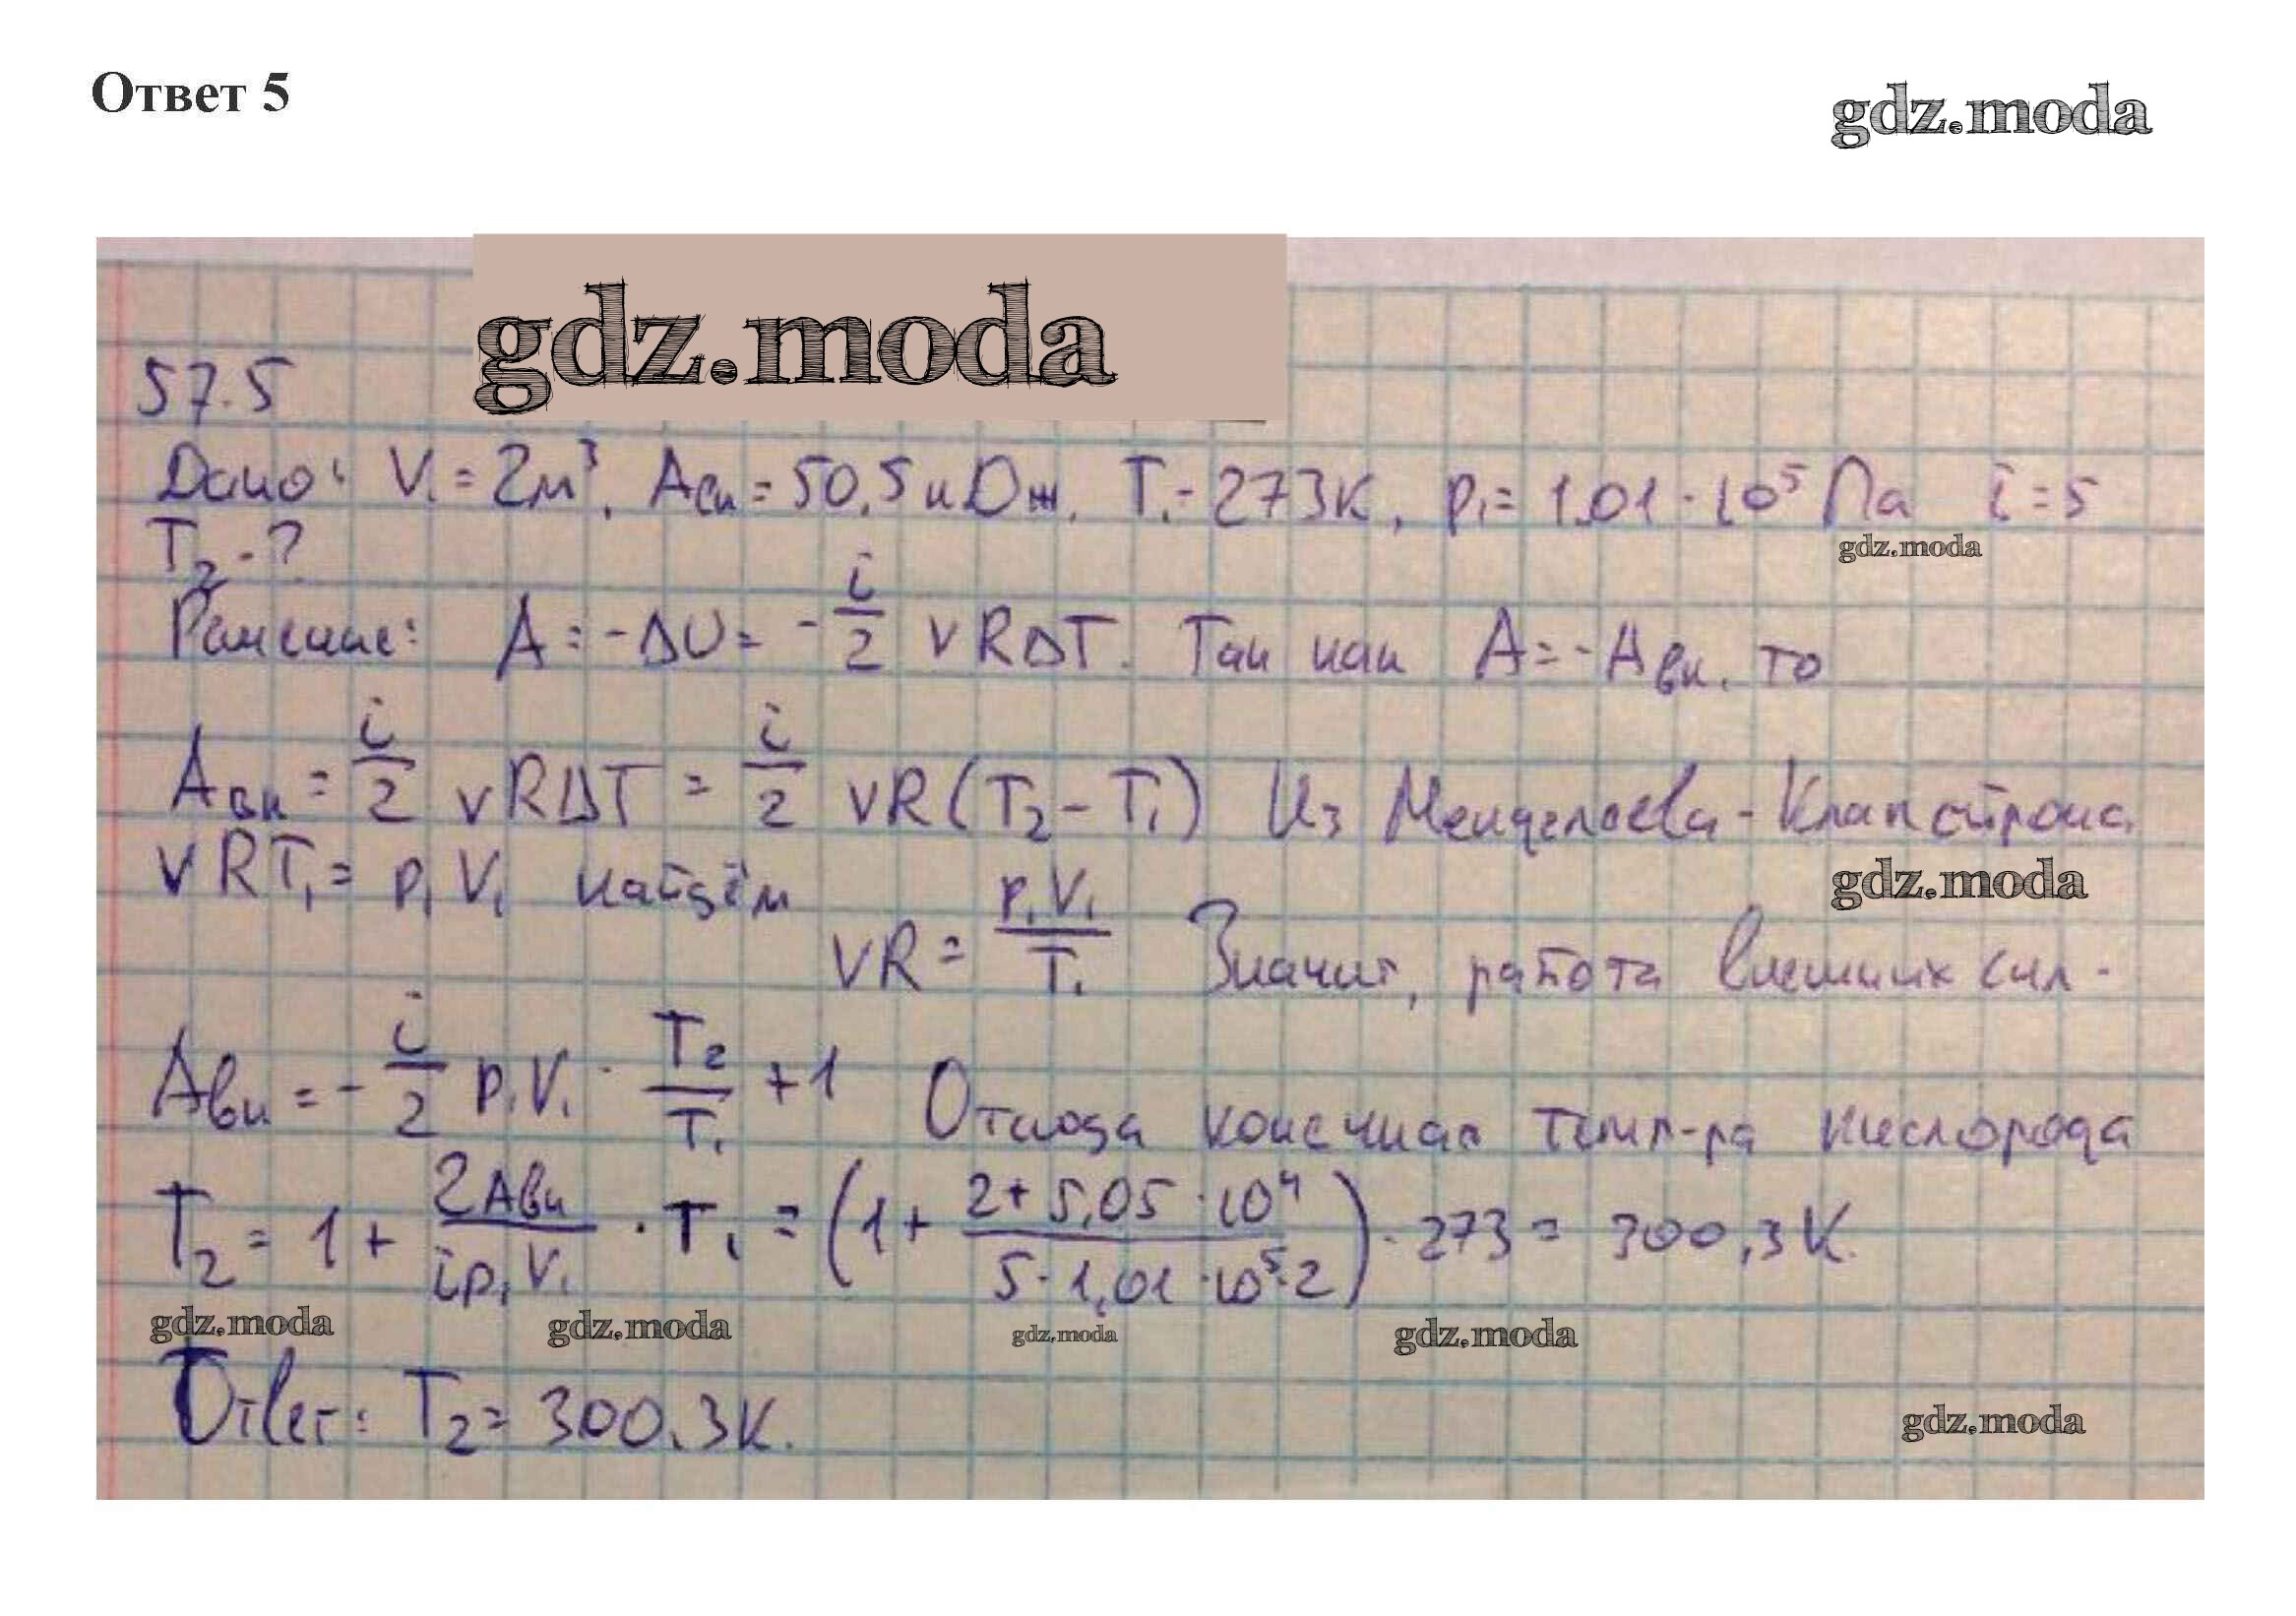 Ответ 5
gdz.moda
gdz.moda
57.5
Дано: V₁ = 2м³, Aвн = 50,5 кДж, T₁ = 273К, p₁ = 1,01 · 10⁵ Па i = 5
T₂ - ?
gdz.moda
Решение: A = -ΔU = - i/2 νRΔT. Так как A = -Aвн, то
Aвн = i/2 νRΔT = i/2 νR(T₂ - T₁) Из Менделеева-Клапейрона
νRT₁ = p₁V₁ найдём
gdz.moda
νR = p₁V₁/T₁ Значит, работа внешних сил -
Aвн = - i/2 p₁V₁ · T₂/T₁ + 1 Отсюда конечная темп-ра кислорода
T₂ = 1 + 2Aвн/ip₁V₁ · T₁ = (1 + 2+5,05·10⁴/5·1,01·10⁵·2) · 273 = 300,3К.
gdz.moda gdz.moda gdz.moda gdz.moda
Ответ: T₂ = 300.3К.
gdz.moda